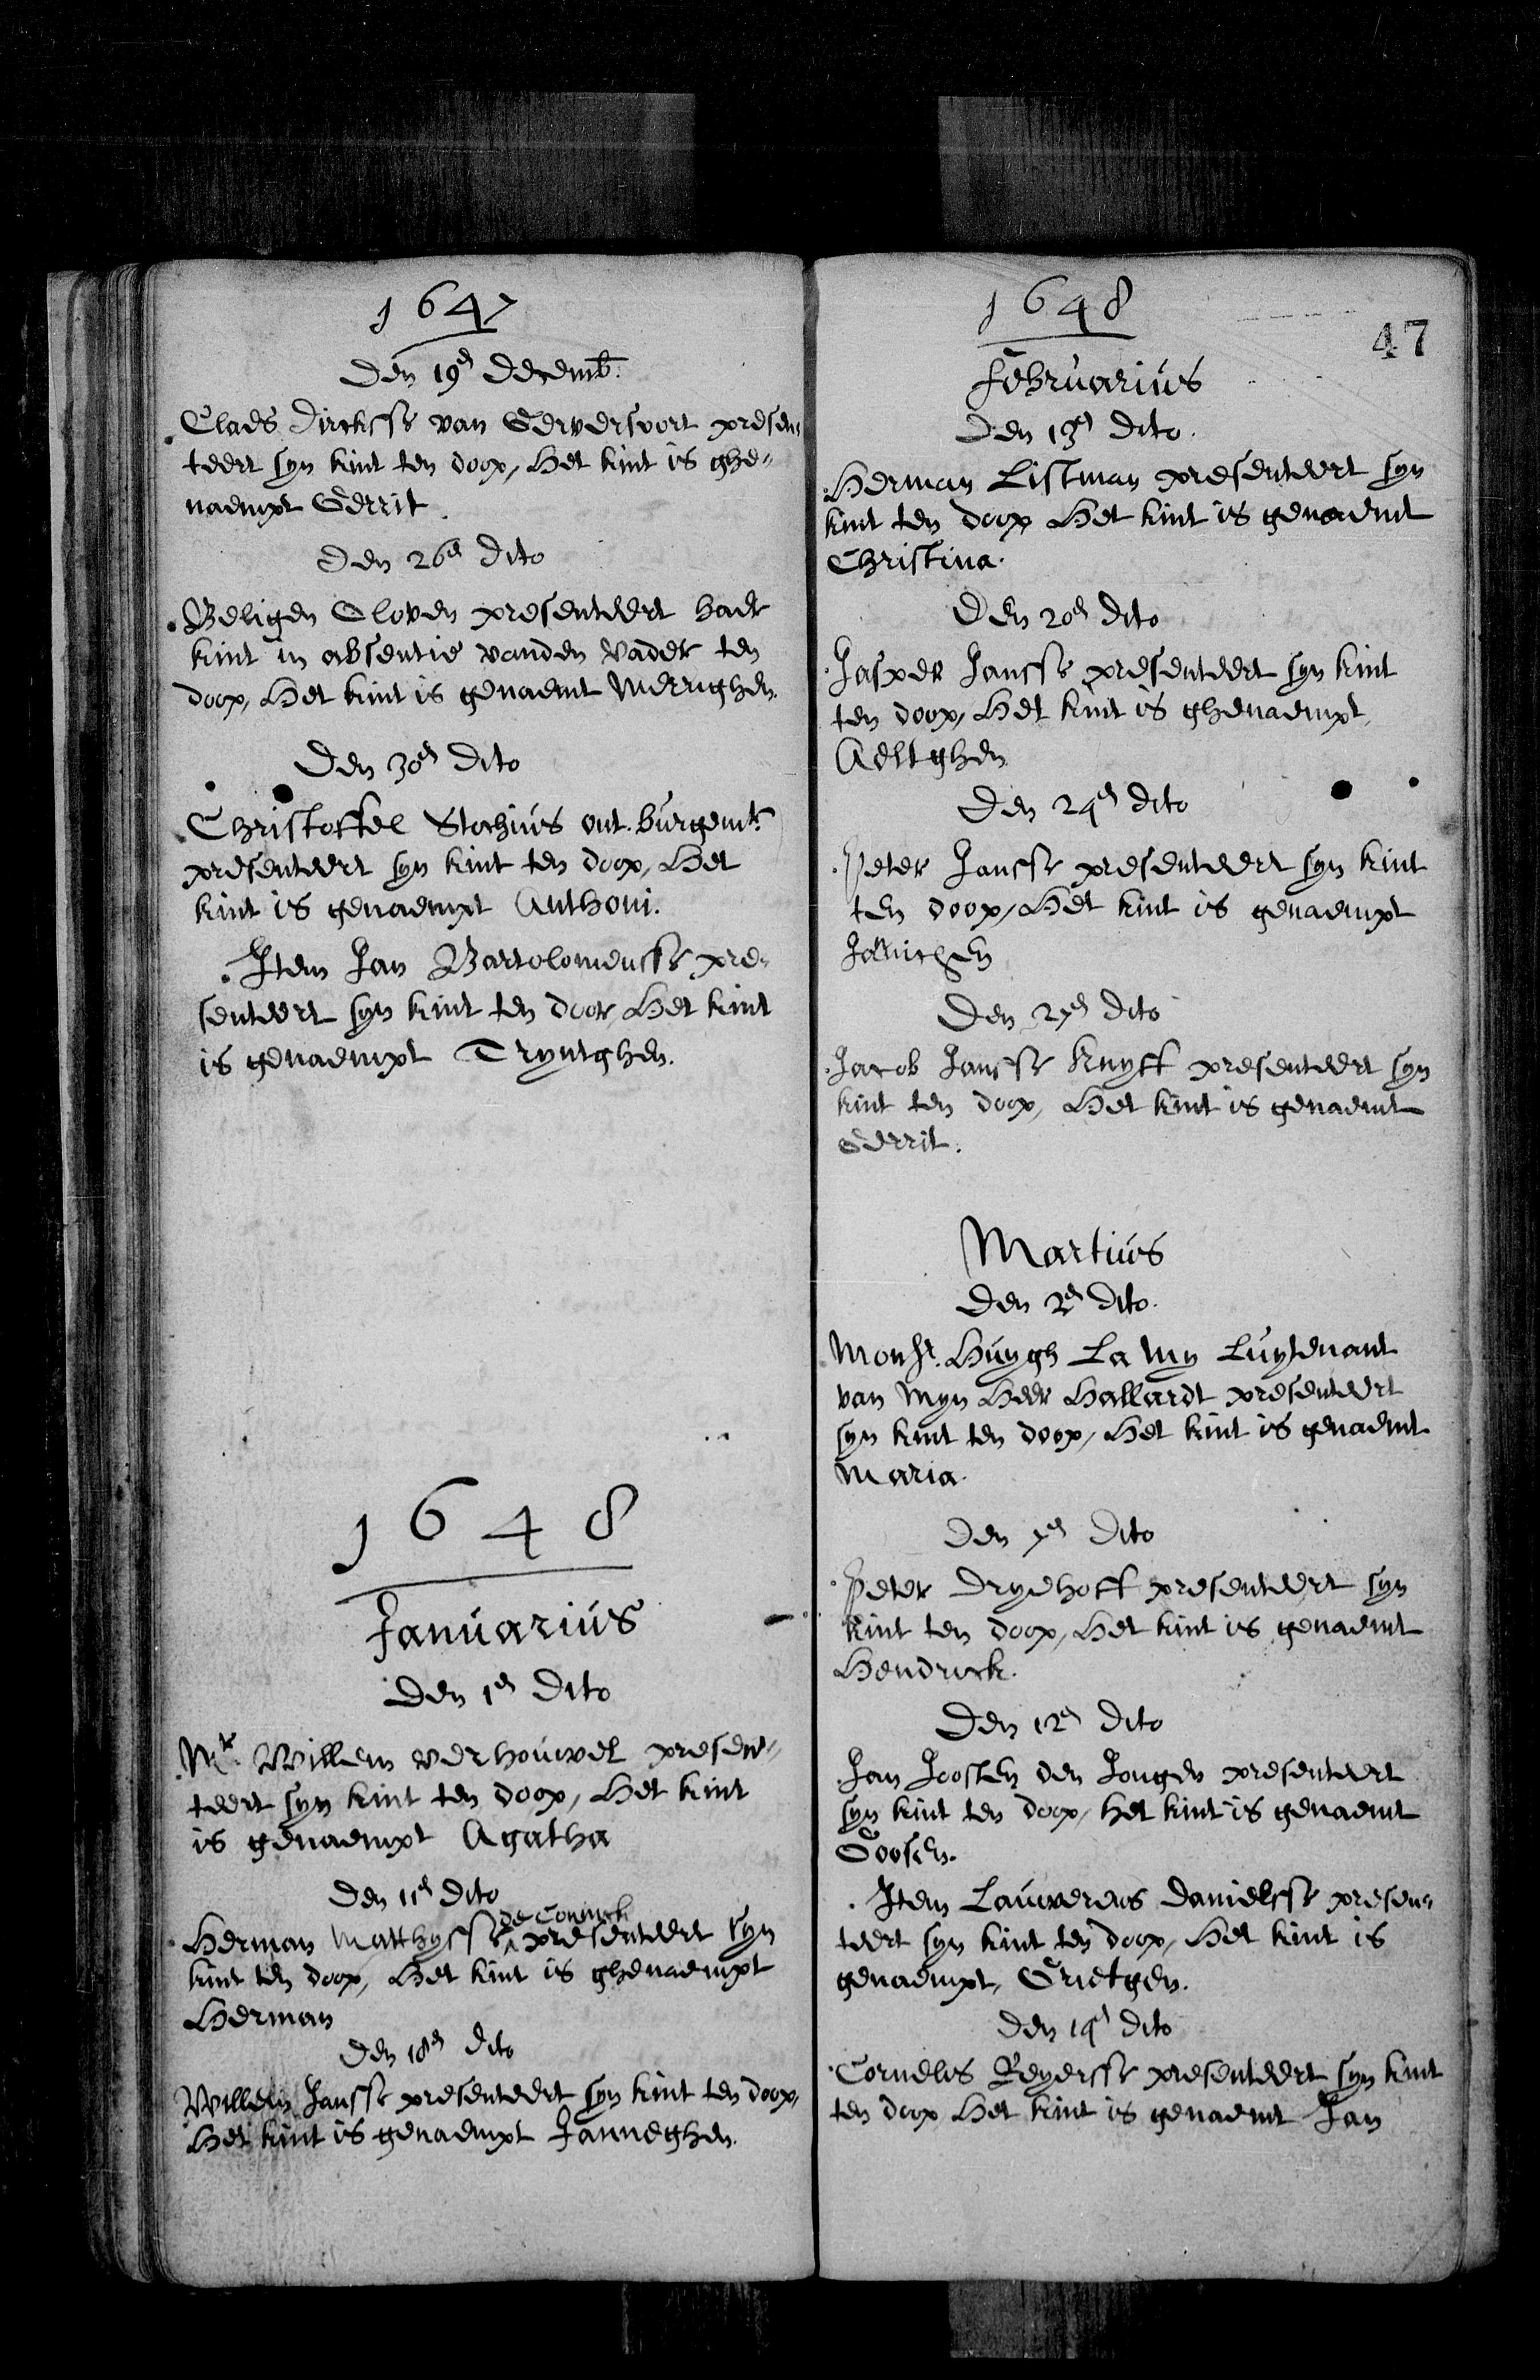 1647
Den 19en decemb.
Claes Dircksse van Gerversvort presen-
teert syn kint ten doop, Het kint is ghe-
naempt Gerrit
Den 26en dito
Beligen Cloven presenteert haer
kint in absentie vanden vader ten
doop, Het kint is genaemt Merrighen.
Den 30en dito
Christoffel Stochius out. burgemr.
presenteert syn kint ten doop, Het
kint is genaempt Anthoni.
Item Jan Bartolomeusse pre-
senteert syn kint ten doop, Het kint
is genaempt Tryntghen.
1648
Januarius
Den 1en dito
Mr. Willem verhouwel presen-
teert syn kint ten doop, Het kint
is genaempt Agatha
Den 11en dito
Herman Matthysse de Coninck presenteert syn
kint ten doop, Het kint is ghenaempt
Herman
Den 18en dito
Willem Jansse presenteert syn kint ten doop,
Het kint is genaempt Janneghen.
1648
47
Februarius
Den 13en dito.
Herman Listman presenteert syn
kint ten doop Het kint is genaemt
Christina.
Den 20en dito
Jasper Jansse presenteert syn kint
ten doop, Het kint is ghenaempt
Aeltghen
Den 24en dito
Peter Jansse presenteert syn kint
ten doop, Het kint is genaempt
Den 27en dito
Jacob Jansse Knyff presenteert syn
kint ten doop, Het kint is genaemt
Gerrit.
Martius
Den 2en dito.
Monsr. Huygh La My Luytenant
van Myn Heer Hallardt presenteert
syn kint ten doop, Het kint is genaemt
Maria.
Den 7en dito
Peter Dryehoff presenteert syn
kint ten doop, Het kint is genaemt
Hendrick.
Den 12en dito
Jan Joosten den Jongen presenteert
syn kint ten doop, het kint is genaemt
Goosen.
Item Lauwerens Danielsse presen-
teert syn kint ten doop, Het kint is
genaempt, Grietgen.
Den 14en dito
Cornelis Reyersse presenteert syn kint
ten doop Het kint is genaemt Jan